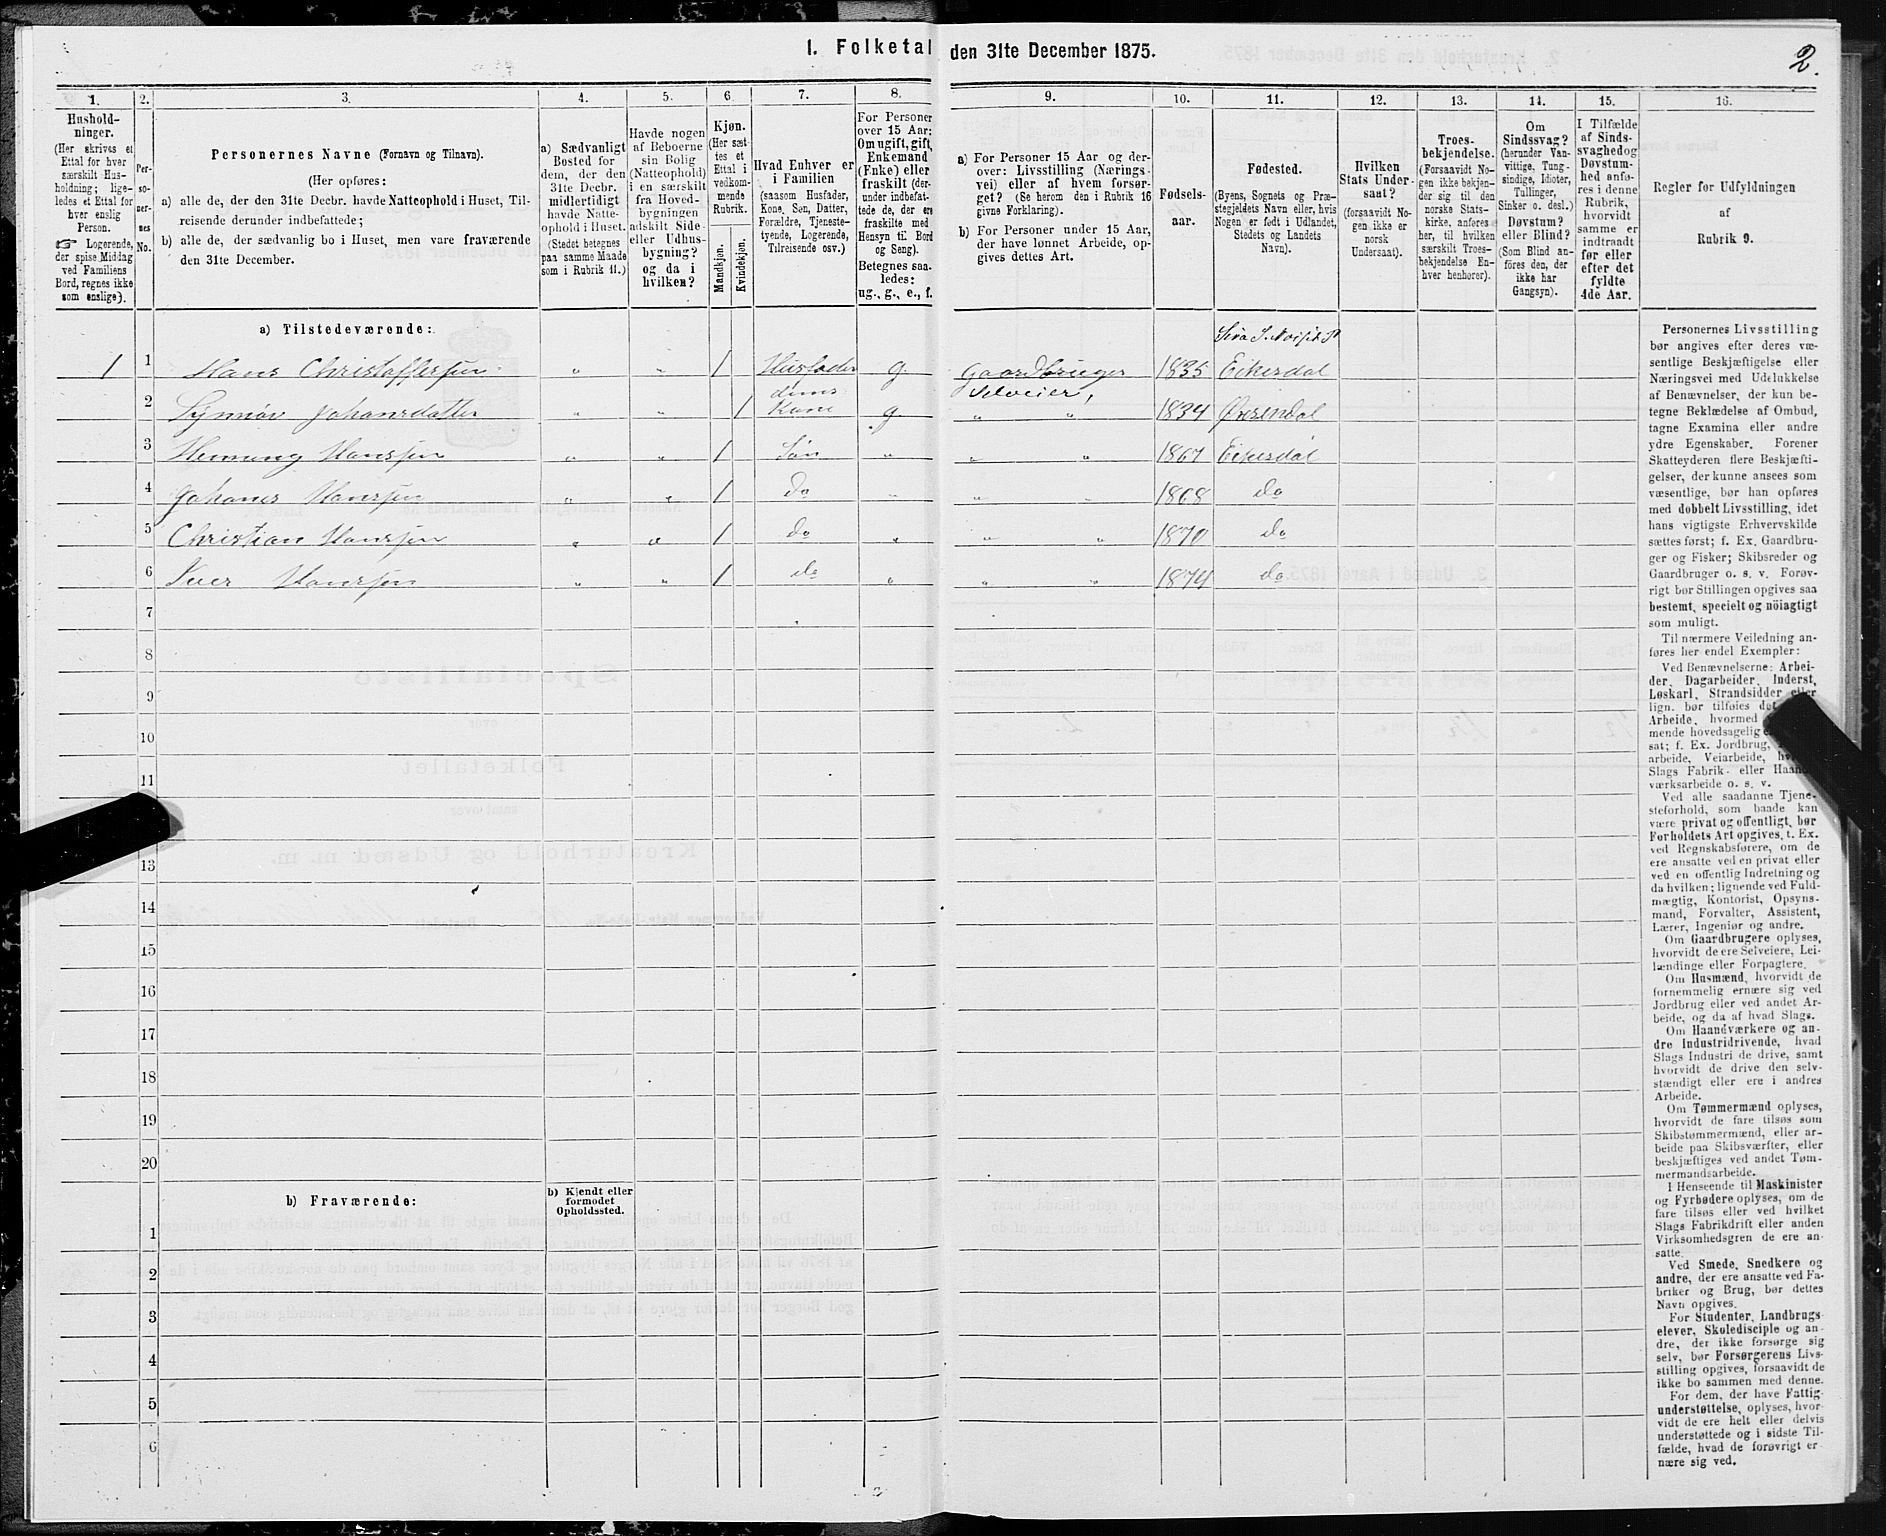 1. Folketal den 31te December 1875.
2.
1.
Hushold-
ninger.
(Her skrives et
Ettal for hver
særskilt Hus-
holdning; lige-
ledes et Ettal for
hver enslig
Person.
☞ Logerende,
der spise Middag
ved Familiens
Bord, regnes ikke
som enslige).
2.
Per-
so-
ner-
nes
No.
3.
Personernes Navne (Fornavn og Tilnavn).
(Her opføres:
a) alle de, der den 31te Decbr. havde Natteophold i Huset, Til-
reisende derunder indbefattede;
b) alle de, der sædvanlig bo i Huset, men vare fraværende
den 31te December.
4.
a) Sædvanligt
Bosted for
dem, der den
31te Decbr.
midlertidigt
havde Natte-
ophold i Huset.
(Stedet betegnes
paa samme Maade
som i Rubrik 11.)
5.
Havde nogen
af Beboerne
sin Bolig
(Natteophold)
i en særskilt
fra Hoved-
bygningen
adskilt Side-
eller Udhus-
bygning?
og da i
hvilken?
6
Kjøn.
(Her sæt-
tes et
Ettal i
vedkom-
mende
Rubrik.
Mandkjøn.
Kvindekjøn.
7.
Hvad Enhver er
i Familien
(saasom Husfader,
Kone, Søn, Datter,
Forældre, Tjeneste-
tyende, Logerende,
Tilreisende osv.)
8.
For Personer
over 15 Aar:
Om ugift, gift,
Enkemand
(Enke) eller
fraskilt (der-
under indbefat-
tede de, der ere
fraskilte med
Hensyn til Bord
og Seng).
Betegnes saa-
ledes:
ug., g., e., f.
9.
a) For Personer 15 Aar og der-
over: Livsstilling (Nærings-
vei) eller af hvem forsør-
get? (Se herom den i Rubrik 16
givne Forklaring).
b) For Personer under 15 Aar,
der have lønnet Arbeide, op-
gives dettes Art.
10.
Fødsels-
aar.
11.
Fødested.
(Byens, Sognets og Præ-
stegjeldets Navn eller, hvis
Nogen er født i Udlandet,
Stedets og Landets
Navn).
12.
Hvilken
Stats Under-
saat?
(forsaavidt No-
gen ikke er
norsk
Undersaat).
13.
Troes-
bekjendelse.
(Forsaavidt No-
gen ikke bekjen-
der sig til den
norske Stats-
kirke, anføres
her, til hvilken
særskilt Troes-
bekjendelse En-
hver henhører).
14.
Om
Sindssvag?
(herunder Van-
vittige, Tung-
sindige, Idioter,
Tullinger,
Sinker o. desl.)
Døvstum?
eller Blind?
(Som Blind an-
føres den, der
ikke har
Gangsyn).
15.
I Tilfælde
af Sinds-
svaghed og
Døvstum-
hed anfø-
res i denne
Rubrik,
hvorvidt
samme er
indtraadt
før eller
efter det
fyldte
4de Aar.
16.
Regler for Udfyldningen
af
Rubrik 9.
a) Tilstedeværende:
1 1 Hans Christoffersen " " 1 Husfader g. Gaardbruger 1835 Eikesdal
Selveier,
2 Synnøv Johansdatter " " 1 dens Kone g " " 1834 Øxendal
3 Henning Hanssen " " 1 Søn " " " 1867 Eikesdal
4 Johanes Hanssen " " 1 do " " " 1868 do
5 Christian Hanssen " " 1 do " " " 1870 do
6 Iver Hanssen " " 1 do " " " 1874 do
7
8
9
10
11
13
14
15
16
17
18
19
20
b) Fraværende:
b) Kjendt eller
formodet
Opholdssted.
1
2
3
4
5
6
Personernes Livsstilling
bør angives efter deres væ-
sentlige Beskjæftigelse eller
Næringsvei med Udelukkelse
af Benævnelser, der kun be-
tegne Beklædelse af Ombud,
tagne Examina eller andre
ydre Egenskaber. Forener
Skatteyderen flere Beskjæfti-
gelser, der kunne ansees som
væsentlige, bør han opføres
med dobbelt Livsstilling, idet
hans vigtigste Erhvervskilde
sættes først; f. Ex. Gaardbru-
ger og Fisker; Skibsreder og
Gaardbruger o. s. v. Forøv-
rigt bør Stillingen opgives saa
bestemt, specielt og nöiagtigt
som muligt.
Til nærmere Veiledning an-
føres her endel Exempler:
Ved Benævnelserne: Arbei-
der, Dagarbeider, Inderst,
Løskarl, Strandsidder eller
lign. bør tilføies det
Arbeide, hvormed
mende hovedsagelig
sat; f. Ex. Jordbrug,
arbeide, Veiarbeide,
Slags Fabrik- eller Haand-
værksarbeide o. s. v.
Ved alle saadanne Tjene-
steforhold, som baade kan
være privat og offentligt, bør
Forholdets Art opgives, t. Ex.
ved Regnskabsførere, om de
ere ansatte ved en privat eller
ved en offentlig Indretning og
da hvilken; lignende ved Fuld-
mægtig, Kontorist, Opsyns-
mand, Forvalter, Assistent,
Lærer, Ingeniør og andre.
Om Gaardbrugere oplyses,
hvorvidt de ere Selveiere, Lei-
lændinge eller Forpagtere.
Om Husmænd, hvorvidt de
fornemmelig ernære sig ved
Jordbrug eller ved andet Ar-
beide, og da af hvad Slags.
Om Haandværkere og an-
dre Industridrivende, hvad
Slags Industri de drive, samt
hvorvidt de drive den selv-
stændigt eller ere i andres
Arbeide.
Om Tømmermænd oplyses,
hvorvidt de fare tilsøs som
Skibstømmermænd, eller ar-
beide paa Skibsværfter, eller
beskjæftiges ved andet Tøm-
mermandsarbeide.
I Henseende til Maskinister
og Fyrbødere oplyses, om de
fare tilsøs eller ved hvilket
Slags Fabrikdrift eller anden
Virksomhedsgren de ere an-
satte.
Ved Smede, Snedkere og
andre, der ere ansatte ved Fa-
briker og Brug, bør dettes
Navn opgives.
For Studenter, Landbrugs-
elever, Skoledisciple og an-
dre, der ikke forsørge sig
selv, bør Forsørgerens Livs-
stilling opgives, forsaavidt de
ikke bo sammen med denne.
For dem, der have Fattig-
understøttelse, oplyses, hvor-
vidt de ere helt eller delvis
understøttede og i sidste Til-
fælde, hvad de forøvrigt er-
nære sig ved.